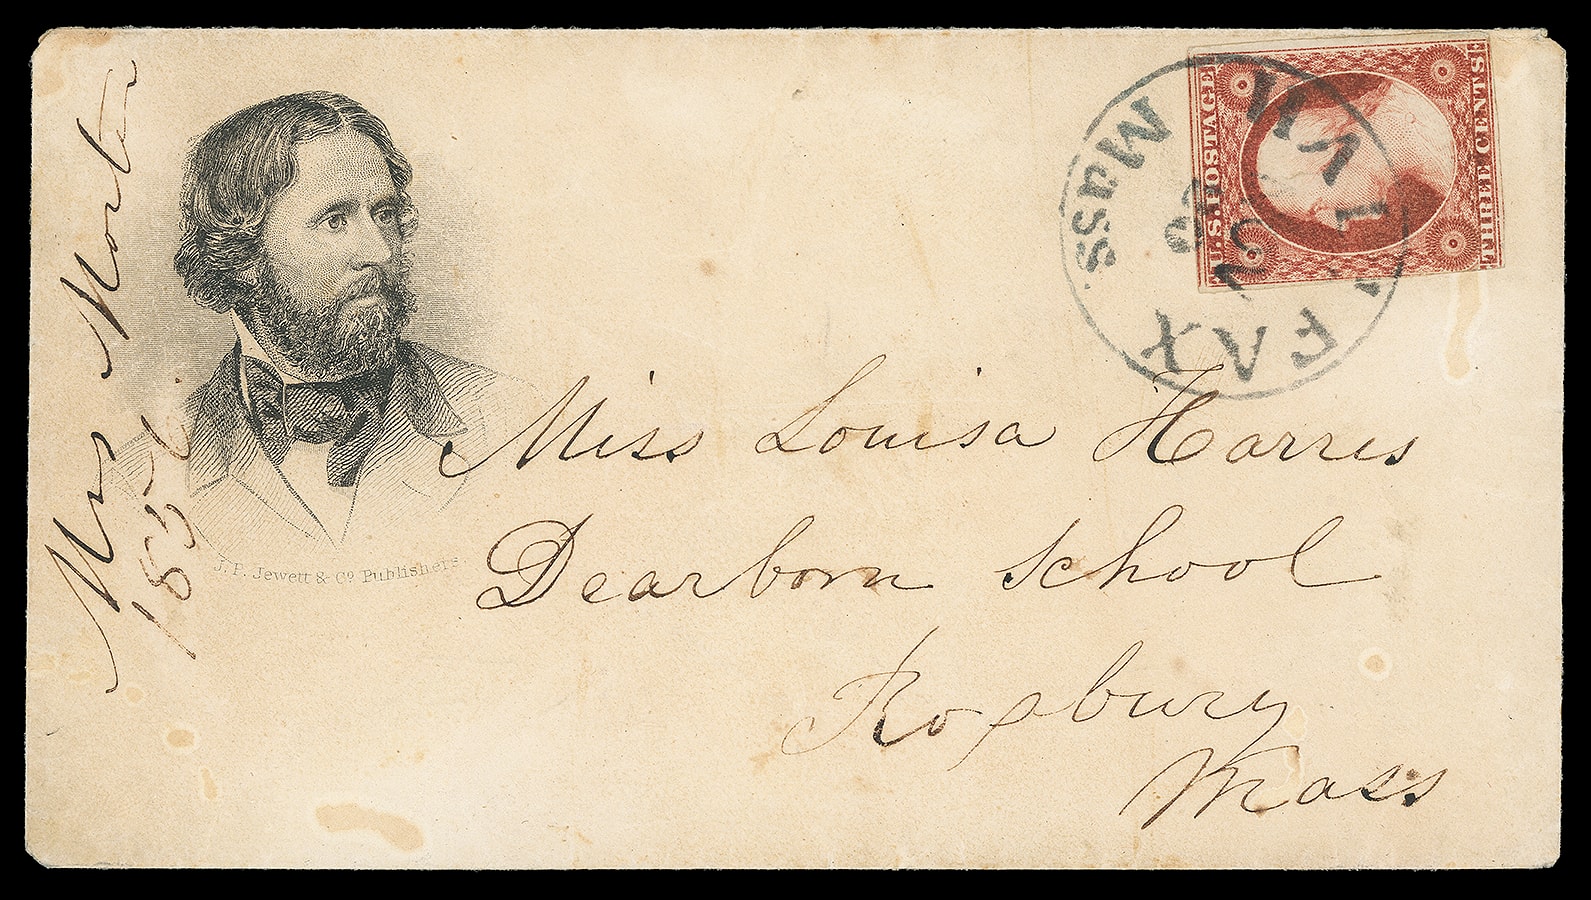 Mrs Morton
1856.
J. P. Jewett & Co Publishers.
U.S. POSTAGE
THREE CENTS
Mass.
Miss Louisa Harris
Dearborn School
Roxbury
Mass